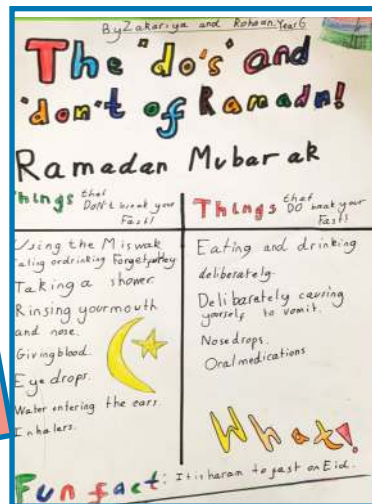 By Zakariya and Rohaan. Year 6
The 'do's' and
'don't of Ramadn!
Ramadan Mubarak
Things that DON't break your Fast!
Using the Miswak
Eating or drinking Forgetfulley
Taking a shower.
Rinsing your mouth
and nose.
Giving blood.
Eye drops.
Water entering the ears.
Inhalers.
Things that DO break your Fast!
Eating and drinking
deliberately.
Deliberately causing
yourself to vomit.
Nose drops.
Oral medications
What!
Fun fact: It is haram to fast on Eid.